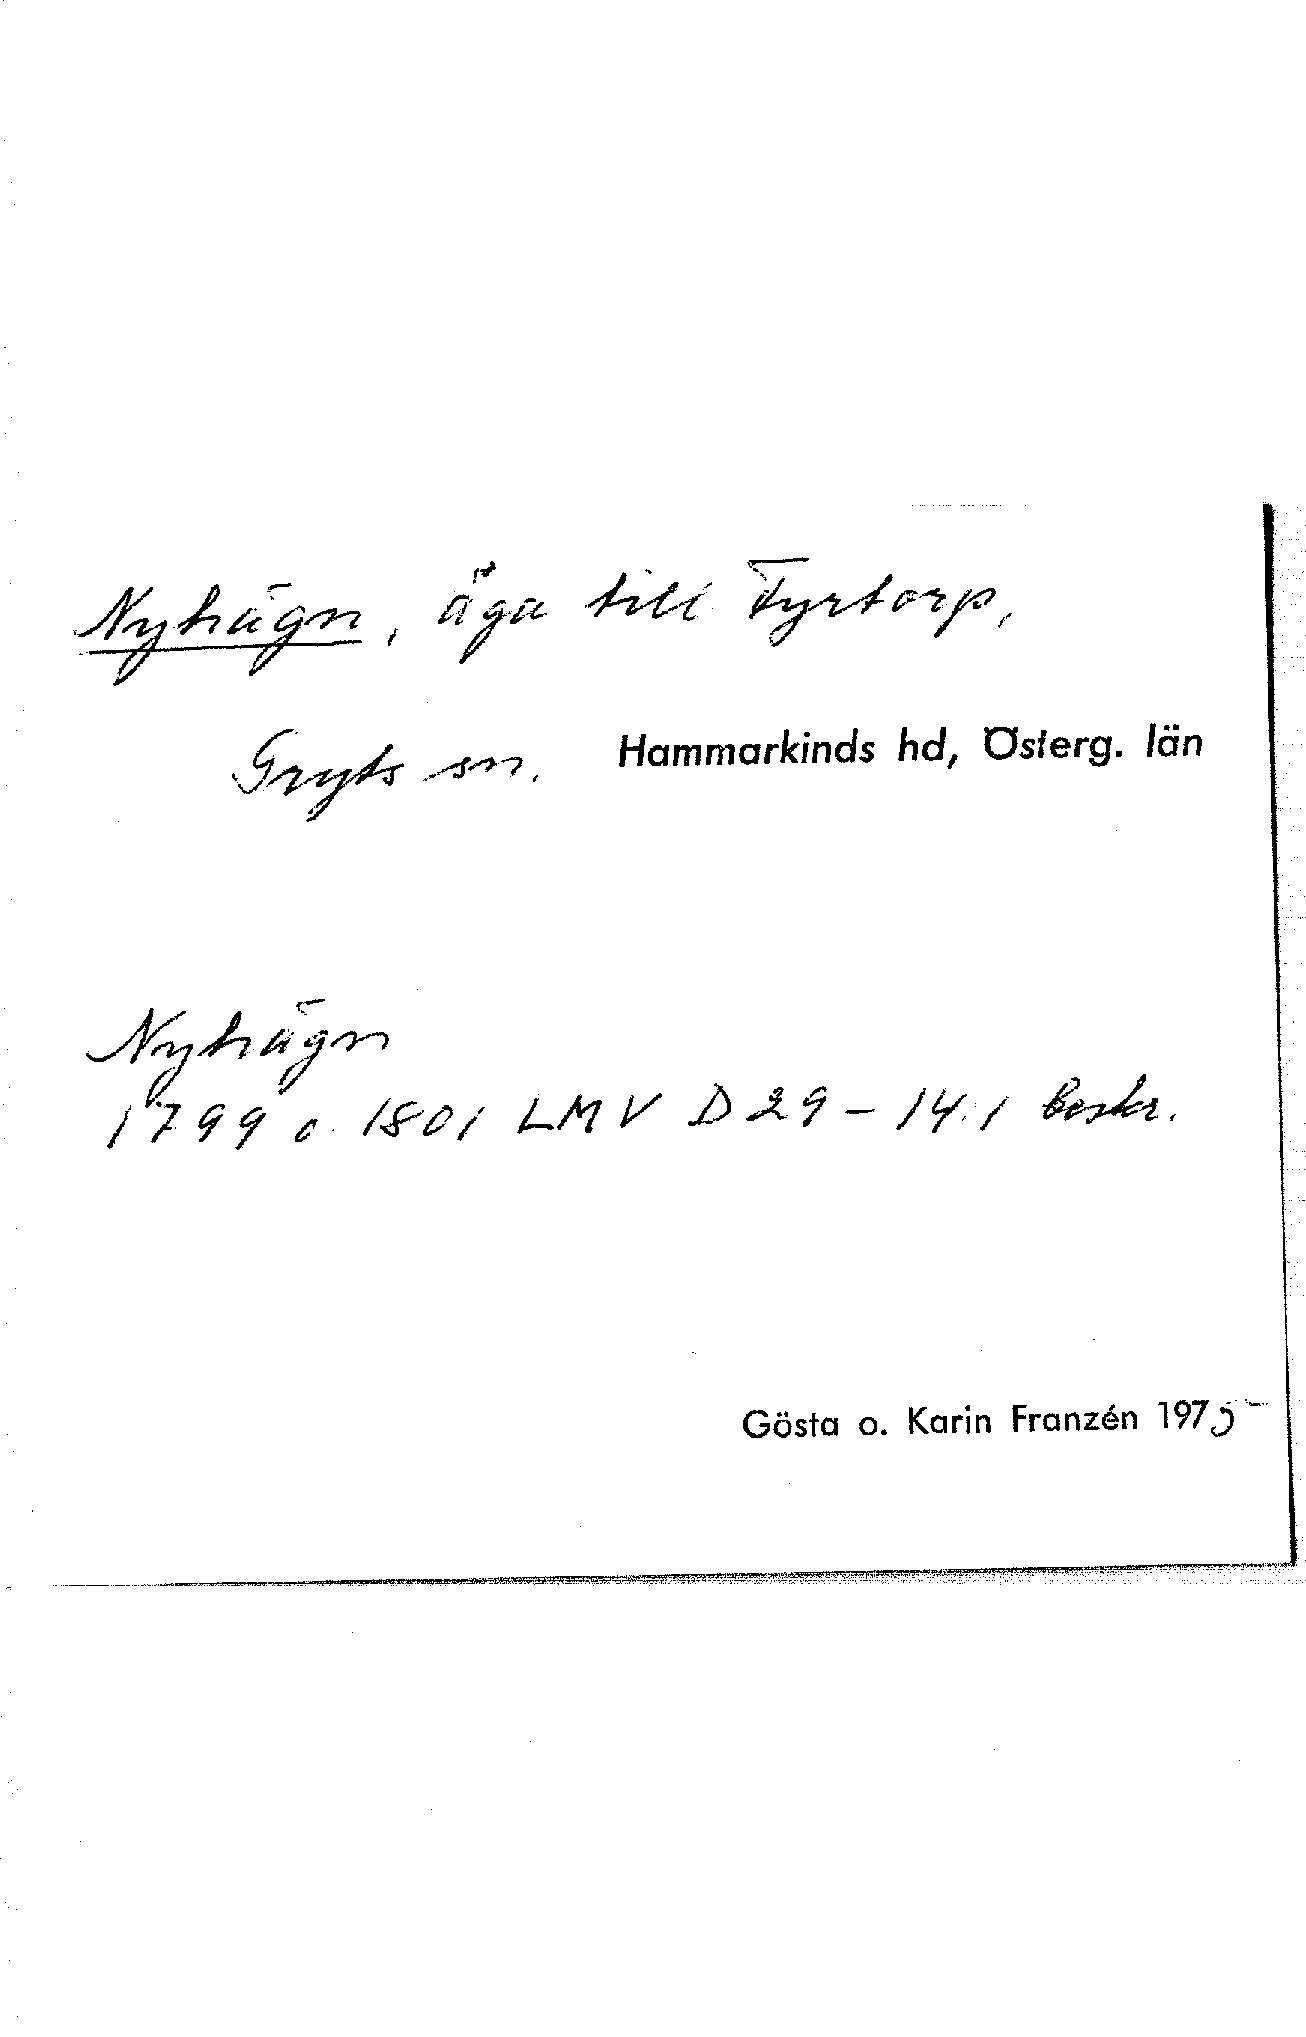 Nyhägn, äga till Fyrtorp,
Gryts sn. Hammarkinds hd, Österg. län
Nyhägn
1799 o. 1801 LMV D29-14.1 beskr.
Gösta o. Karin Franzén 1975